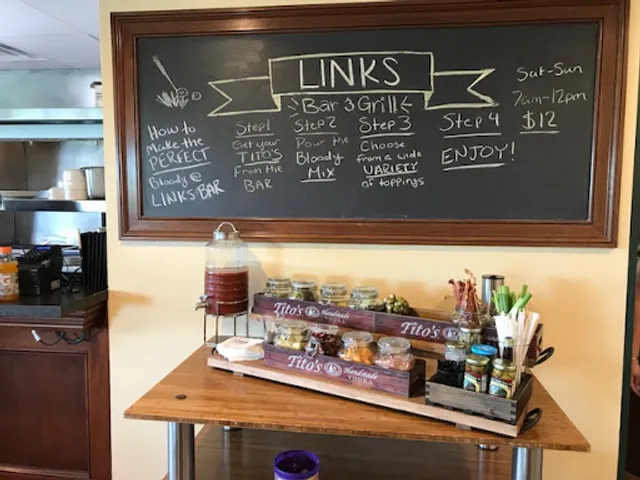 LINKS
Bar & Grill
How to
Make the
PERFECT
Bloody @
LINKS BAR
Step 1
Get your
TITO'S
From the
BAR
Step 2
Pour the
Bloody
MIX
Step 3
Choose
from a wide
VARIETY
of toppings
Step 4
ENJOY!
Sat-Sun
7am-12pm
$12
Tito's Handmade
VODKA
Tito's
Tito's Handmade
VODKA